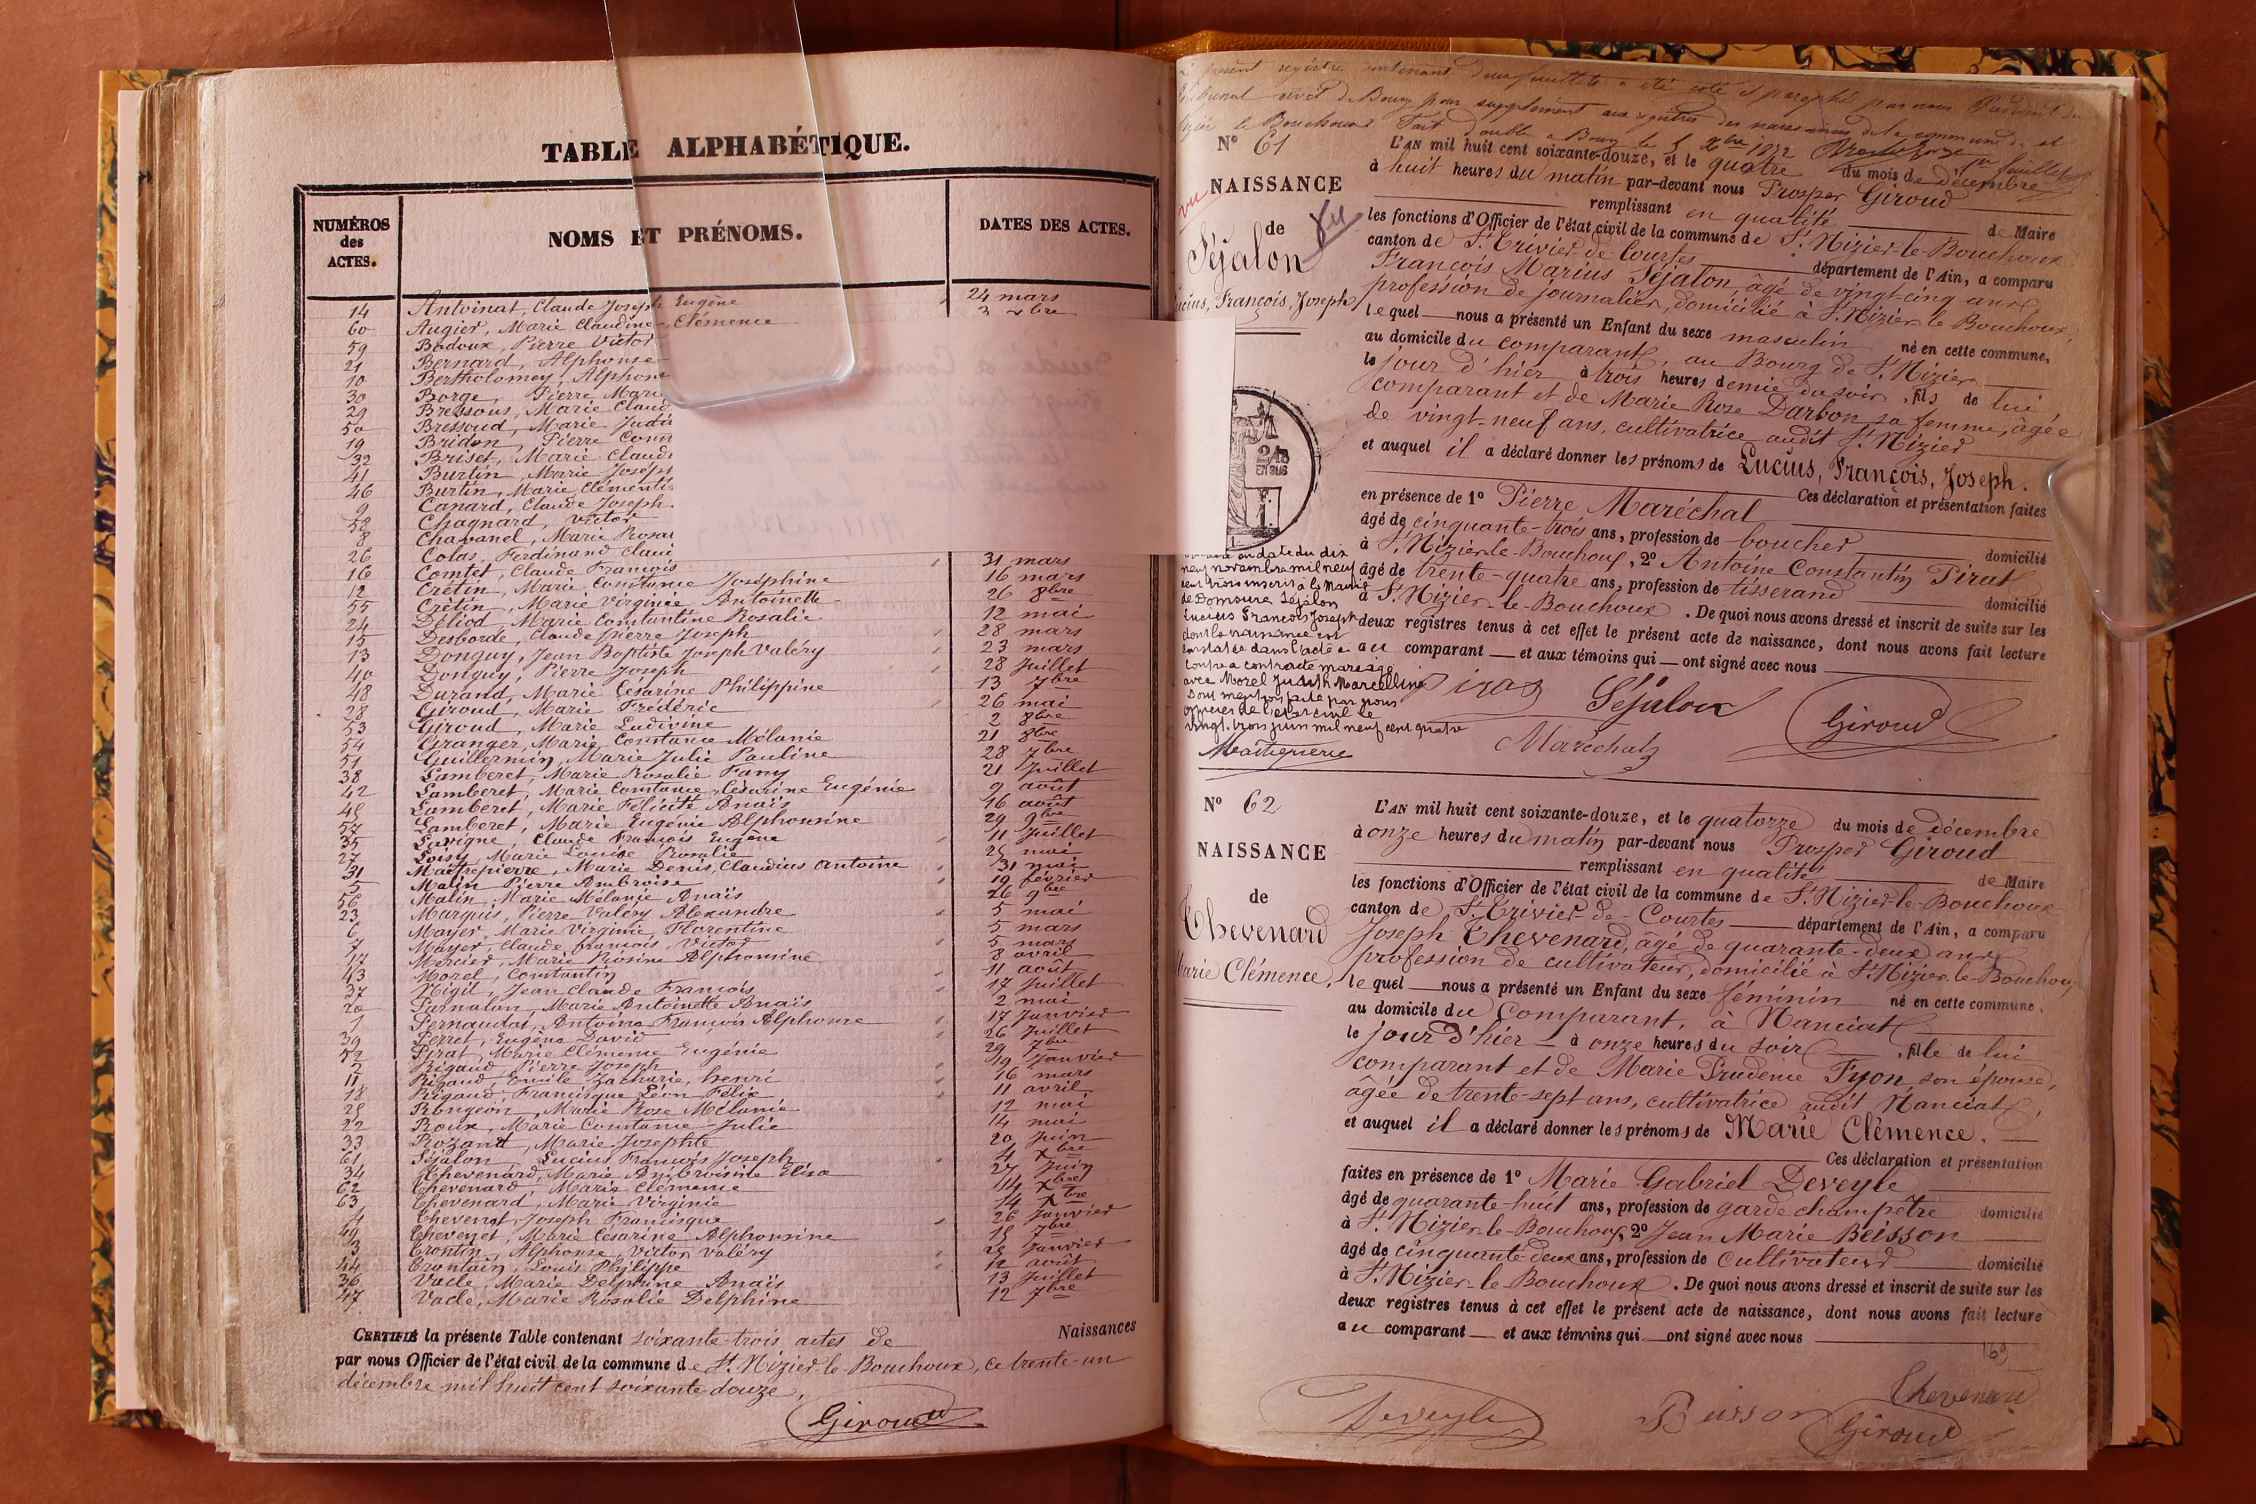 TABLE ALPHABÉTIQUE.
NUMÉROS des ACTES.
NOMS ET PRÉNOMS.
DATES DES ACTES.
14 Antoinat, Claude Joseph Eugène 24 mars
60 Augier, Marie Claudine Clémence 3 xbre
59 Bodoux, Pierre Victor
21 Bernard, Alphonse
10 Bertholomey, Alphon
30 Borge, Pierre Marie
29 Bressous, Marie Claud
50 Bressoud, Marie Judi
19 Bridon, Pierre Conn
32 Briset, Marie Claud
41 Burtin, Marie Joseph
46 Burtin, Marie Clémenti
9 Canard, Claude Joseph
58 Chagnard, Victor
8 Chavanel, Marie Rosa
26 Colas, Ferdinand Claui
16 Comtet, Claude François 31 mars
12 Crétin, Marie Constance Joséphine 16 mars
55 Crétin, Marie Virginie Antoinette 26 8bre
24 Déliod, Marie Constantine Rosalie 12 mai
15 Desborde, Claude Pierre Joseph 28 mars
13 Donguy, Jean Baptiste Joseph Valéry 23 mars
40 Donguy, Pierre Joseph 28 Juillet
48 Durand, Marie Césarine Philippine 13 7bre
28 Giroud, Marie Frédéric 26 mai
53 Giroud, Marie Ludivine 2 8bre
54 Granger, Marie Constance Mélanie 21 8bre
51 Guillermin, Marie Julie Pauline 28 7bre
38 Lamberet, Marie Rosalie Fany 21 Juillet
42 Lamberet, Marie Constance Césarine Eugénie 9 août
45 Lamberet, Marie Félicité Anaïs 16 août
57 Lamberet, Marie Eugénie Alphonsine 29 9bre
35 Lavigne, Claude François Eugène 11 Juillet
27 Loisy, Marie Louise Rosalie 25 mai
31 Maîtrepierre, Marie Denis, Claudius Antoine 31 mai
5 Malin Pierre Ambroise 19 février
56 Malin, Marie Mélanie Anaïs 26 9bre
23 Marquis, Pierre Valéry Alexandre 5 mai
6 Mayer, Marie Virginie Florentine 5 mars
7 Mayer, Claude François Victor 5 mars
17 Mercier, Marie Rosine Alphonsine 8 avril
43 Morel, Constantin 11 août
37 Nigil, Jean Claude François 17 Juillet
20 Parnalon, Marie Antoinette Anaïs 2 mai
1 Pernaudat, Antoine François Alphonse 17 Janvier
39 Perret, Eugène David 26 Juillet
52 Pirat, Marie Clémence Eugénie 29 7bre
2 Rigaud, Pierre Joseph 19 Janvier
11 Rigaud, Emile Zacharie, henri 16 mars
18 Rigaud, Francisque Léon Félix 11 avril
25 Rongeon, Marie Rose Mélanie 12 mai
22 Roux, Marie Constance Julie 14 mai
33 Rozand, Marie Josephte 20 Juin
61 Séjalon, Lucius François Joseph 4 xbre
34 Thevenard, Marie Ambroisine Eliza 27 Juin
62 Thevenard, Marie Clémence 14 xbre
63 Thevenard, Marie Virginie 14 xbre
4 Thevenet, Joseph Francisque 26 Janvier
49 Thevenet, Marie Césarine Alphonsine 15 7bre
3 Trontin, Alphonse, Victor Valéry 25 Janvier
44 Trontain, Louis Philippe 12 août
36 Vade, Marie Delphine Anaïs 13 Juillet
47 Vade, Marie Rosalie Delphine 12 7bre
CERTIFIÉ la présente Table contenant soixante-trois actes de Naissances
par nous Officier de l'état civil de la commune de St. Nizier-le-Bouchoux, ce trente-un
décembre mil huit cent soixante douze.
Giroud
présent registre contenant deux feuillets a été coté et paraphé par nous Président du
Tribunal civil de Bourg pour supplément aux registres des naissances de la commune de St
Nizier le Bouchoux Fait double a Bourg le 5 xbre 1872
1er feuillet
N° 61
NAISSANCE
de
Séjalon
Lucius, François, Joseph
vu
L'AN mil huit cent soixante-douze, et le quatre du mois de décembre
à huit heures du matin par-devant nous Prosper Giroud
remplissant en qualité de Maire
les fonctions d'Officier de l'état civil de la commune de St. Nizier-le-Bouchoux
canton de St. Trivier de Courtes département de l'Ain, a comparu
François Marius Séjalon, âgé de vingt-cinq ans,
profession de journalier, domicilié à St. Nizier le Bouchoux,
lequel nous a présenté un Enfant du sexe masculin né en cette commune,
au domicile du comparant, au Bourg de St. Nizier
le jour d'hier à trois heures demie du soir, fils de lui
comparant et de Marie Rose Darbon sa femme, âgée
de vingt-neuf ans, cultivatrice audit St. Nizier
et auquel il a déclaré donner les prénoms de Lucius, François, Joseph.
Ces déclaration et présentation faites
en présence de 1° Pierre Maréchal
âgé de cinquante-trois ans, profession de boucher domicilié
à St. Nizier-le-Bouchoux, 2° Antoine Constantin Pirat
âgé de trente-quatre ans, profession de tisserand domicilié
à St. Nizier-le-Bouchoux. De quoi nous avons dressé et inscrit de suite sur les
deux registres tenus à cet effet le présent acte de naissance, dont nous avons fait lecture
au comparant et aux témoins qui ont signé avec nous
Pirat Séjalon Giroud
Maréchal
24
EN SUS
en date du dix
neuf novembre mil neuf
cent trois inscrit à la Mairie
de Domsure Séjalon
Lucius François Joseph
dont la naissance est
constatée dans l'acte ci
contre a contracté mariage
avec Morel Judith Marcelline
Dont mention faite par nous
officier de l'état civil le
vingt-trois juin mil neuf cent quatre
Maîtrepierre
N° 62
NAISSANCE
de
Thevenard
Marie Clémence.
L'AN mil huit cent soixante-douze, et le quatorze du mois de décembre
à onze heures du matin par-devant nous Prosper Giroud
remplissant en qualité de Maire
les fonctions d'Officier de l'état civil de la commune de St. Nizier-le-Bouchoux
canton de St. Trivier-de-Courtes département de l'Ain, a comparu
Joseph Thevenard, âgé de quarante-deux ans,
profession de cultivateur, domicilié à St. Nizier-le-Bouchoux
lequel nous a présenté un Enfant du sexe féminin né en cette commune,
au domicile du comparant, à Nanciat
le jour d'hier à onze heures du soir, fille de lui
comparant et de Marie Prudence Fyon, son épouse,
âgée de trente-sept ans, cultivatrice audit Nanciat,
et auquel il a déclaré donner les prénoms de Marie Clémence.
Ces déclaration et présentation
faites en présence de 1° Marie Gabriel Deveyle
âgé de quarante-huit ans, profession de garde champêtre domicilié
à St. Nizier-le-Bouchoux, 2° Jean Marie Beisson
âgé de cinquante-deux ans, profession de cultivateur domicilié
à St. Nizier-le-Bouchoux. De quoi nous avons dressé et inscrit de suite sur les
deux registres tenus à cet effet le présent acte de naissance, dont nous avons fait lecture
au comparant et aux témoins qui ont signé avec nous
169
Thevenard
Deveyle Beisson Giroud